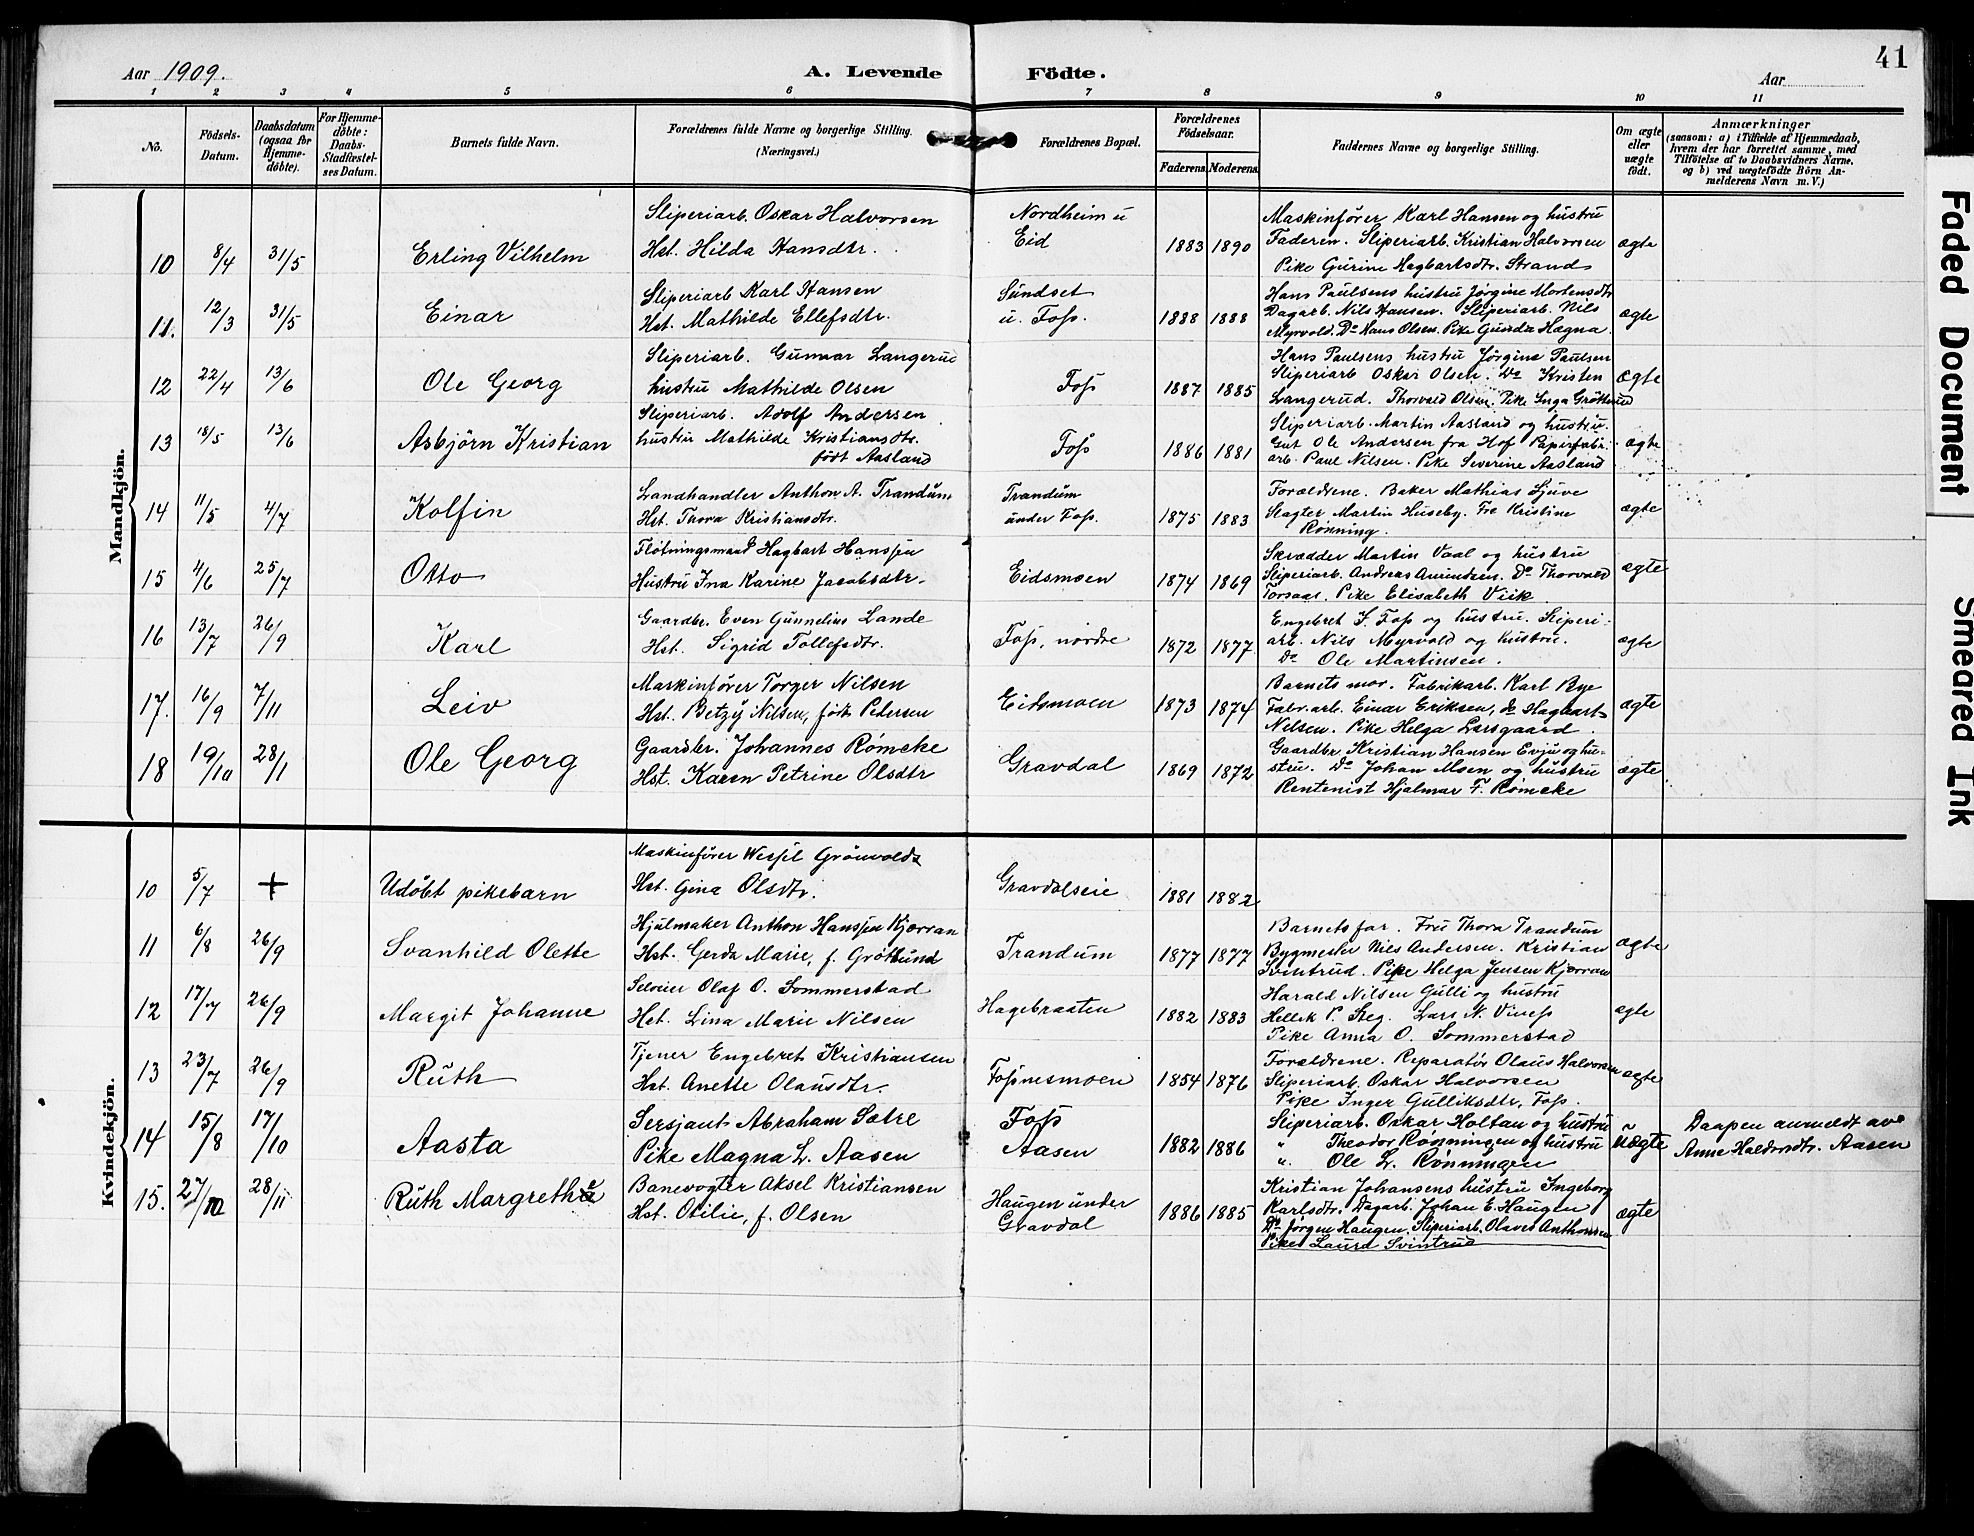 41
Aar 1909.
A. Levende Födte.
Aar
1 2 3 4 5 6 7 8 9 10 11
No.
Födsels-Datum.
Daabsdatum (ogsaa for Hjemmedöbte).
For Hjemmedöbte: Daabs-Stadfæstelses Datum.
Barnets fulde Navn.
Forældrenes fulde Navne og borgerlige Stilling. (Næringsvei.)
Forældrenes Bopæl.
Forældrenes Födselsaar.
Faderens. Moderens.
Faddernes Navne og borgerlige Stilling.
Om ægte eller uægte födt.
Anmærkninger
(saasom: a) i Tilfælde af Hjemmedaab, hvem der har forrettet samme, med Tilföielse af to Daabsvidners Navne, og b) ved uægtefödte Börn Anmelderens Navn m. V.)
Mandkjön.
Sliperiarb. Oskar Halvorsen Nordheim u Maskinfører Karl Hansen og hustru
10 8/4 31/5 Erling Vilhelm Hst. Hilda Hansdtr. Eid 1883 1890 Faderen. Sliperiarb. Kristian Halvorsen ægte
Pike Gurine Hagbartsdtr. Strand
Sliperiarb Karl Hansen Sundset Hans Paulsens hustru Jørgine Mortensdtr
11. 12/3 31/5 Einar Hst. Mathilde Ellefsdtr. u. Foss. 1888 1888 Dagarb. Nils Hansen. Sliperiarb. Nils ægte
Myrvold. Do Hans Olsen. Pike Gunda Hægna.
Sliperiarb. Gunnar Langerud Hans Paulsens hustru Jørgine Paulsen
12 22/4 13/6 Ole Georg hustru Mathilde Olsen Foss 1887 1885 Sliperiarb Oskar Olsen. Do Kristen ægte
Langerud. Thorvald Olsen. Pike Inga Grøtterud
Sliperiarb. Adolf Andersen Sliperiarb. Martin Aasland og hustru.
13 18/5 13/6 Asbjörn Kristian hustru Mathilde Kristiansdtr. Foss 1886 1881 Gut Ole Andersen fra Hof Papirfabr. ægte
født Aasland arb. Paul Nilsen. Pike Severine Aasland
Landhandler Anthon A. Trandum Trandum Forældrene. Baker Mathias Ljuve
14 11/5 4/7 Kolfin Hst. Thora Kristiansdtr. under Foss. 1875 1883 Slagter Martin Huseby. Frk Kristine ægte
Rønning.
Fløtningsmand Hagbart Hanssen Skrædder Martin Vaal og hustru
15 4/6 25/7 Otto Hustru Ina Karine Jacobsdtr. Eidsmoen 1874 1869 Sliperiarb. Andreas Amundsen. Do Thorvald ægte
Torsaas. Pike Elisabeth Viik
Gaardbr. Even Gunnelius Lande Engebret J. Foss og hustru. Sliperi-
16 13/7 26/9 Karl Hst. Sigrid Tollefsdtr. Foss, nordre 1872 1877 arb. Nils Myrvold og hustru. ægte
Do Ole Martinsen.
Maskinfører Torger Nilsen Barnets mor. Fabrikarb. Karl Bye
17. 16/9 7/11 Leiv Hst. Betzy Nilsen, født Pedersen Eidsmoen 1873 1874 Fabr. arb. Einar Eriksen, do Hagbart ægte
Nelsen. Pike Helga Larsgaard
Gaardbr. Johannes Rømcke Gaardbr Kristian Hansen Evju og hu-
18 19/10 28/1 Ole Georg Hst. Karen Petrine Olsdtr Gravdal 1869 1872 stru. Do Johan Moen og hustru ægte
Rentenist Hjalmar F. Rømcke
Kvindekjön.
Maskinfører Wessel Grönvold
10 5/7 + Udöbt pikebarn Hst. Gina Olsdtr. Gravdalseie 1881 1882
Hjulmaker Anthon Hanssen Kjørran Barnets far. Fru Thora Trandum
11 6/8 26/9 Svanhild Olette Hst. Gerda Marie, f. Grøtlund Trandum 1877 1877 Bygmester Nils Andersen. Kristian ægte
Svintrud. Pike Helga Jensen Kjørran
Selveier Olaf O. Sommerstad Harald Nilsen Gulli og hustru
12 17/7 26/9 Margit Johanne Hst. Lina Marie Nilsen Hagebraaten 1882 1883 Hellik P. Steg. Lars N. Viness ægte
Pike Anna O. Sommerstad
Tjener Engebret Kristiansen Forældrene. Reparatør Olaus Halvorsen
13 23/7 26/9 Ruth Hst. Anette Olausdtr. Fossnesmoen 1854 1876 Sliperiarb. Oskar Halvorsen ægte
Pike Inger Gulliksdtr, Foss.
Sersjant Abraham Sætre Foss Sliperiarb. Oskar Holtan og hustru Daapen anmeldt av
14 15/8 17/10 Aasta Pike Magna L. Aasen Aasen 1882 1886 " Theodor Rønningen og hustru uægte Anne Halvorsdtr. Aasen
" Ole L. Rønningen
Banevogter Aksel Kristiansen Haugen under Kristian Johansens hustru Ingeborg
15. 27/10 28/11 Ruth Margrethe Hst. Otilie, f. Olsen Gravdal 1886 1885 Karlsdtr. Dagarb. Johan E. Haugen ægte
Do Jørgen Haugen. Sliperiarb. Olaves Anthonsen
Pike Laura Svintrud
Faded Document
Smeared Ink